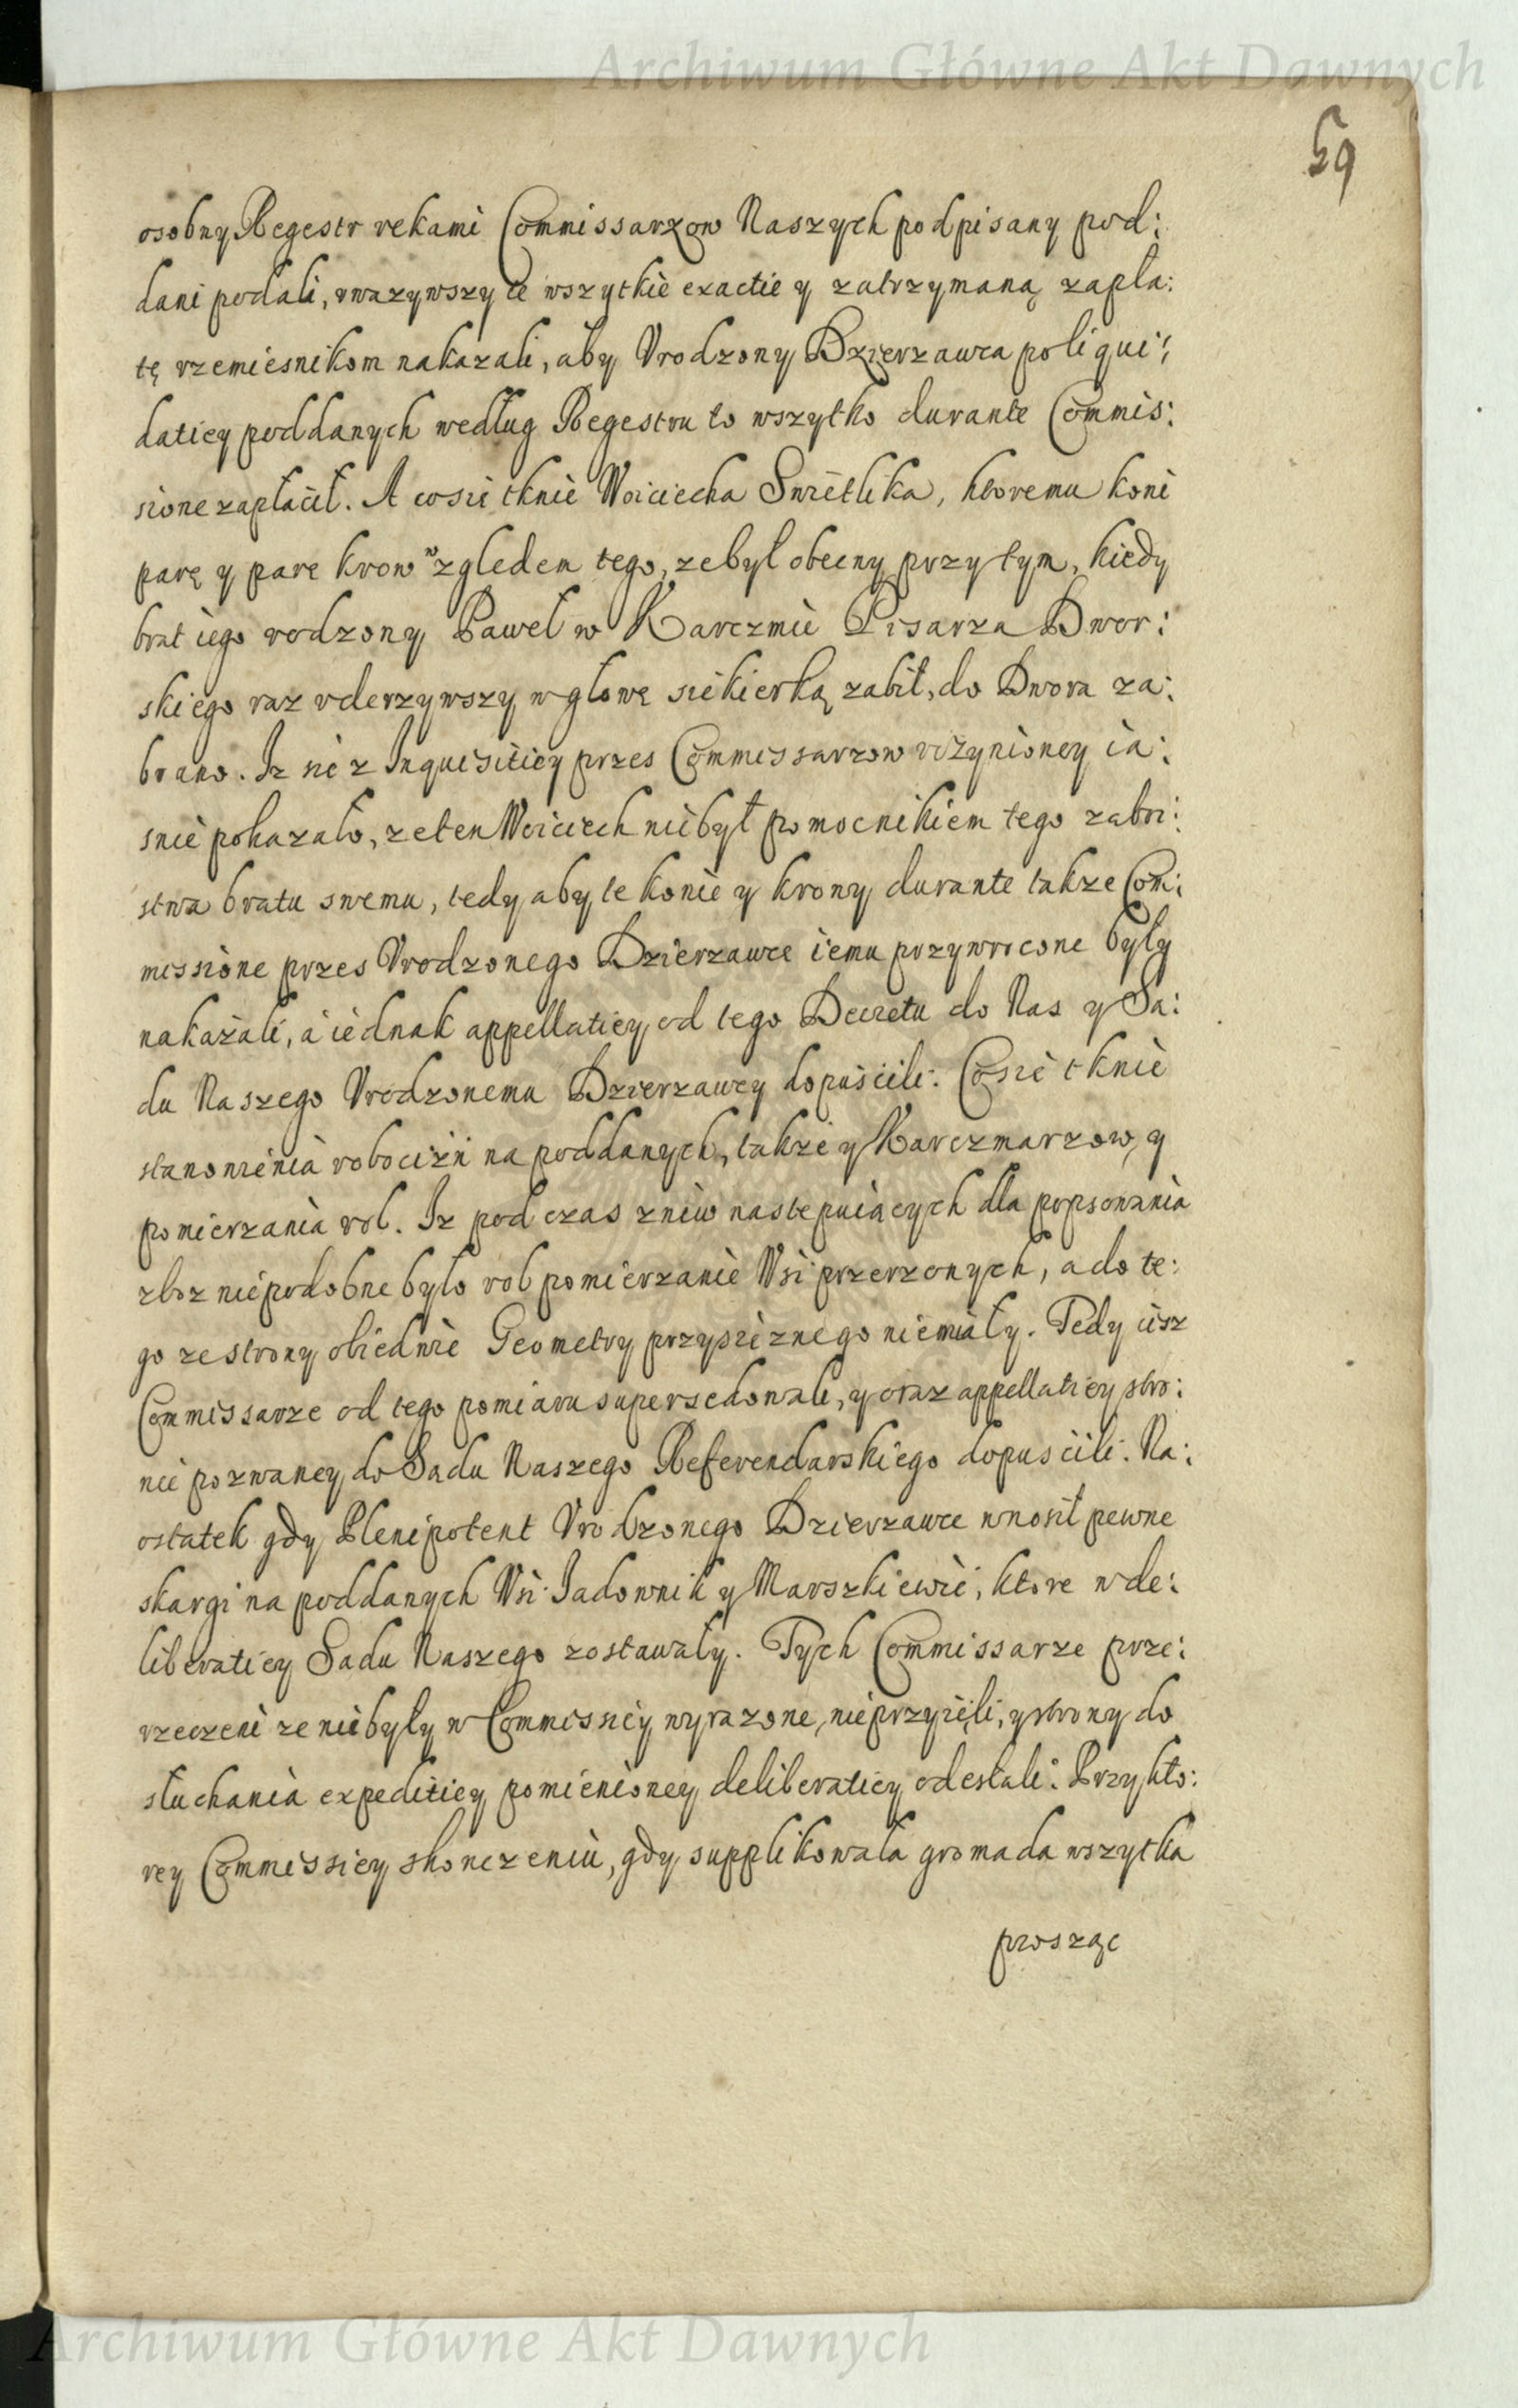 Archiwum Główne Akt Dawnych
59
osobny Regestr rekami Commissarzow Naszych podpisany pod:
dani podali, vwazywszy te wszytkie exactie y zatrzymaną zapła:
tę rzemiesnikom nakazali, aby Vrodzony Dzierzawca po liqui:
datiey poddanych według Regestru to wszytko durante Commis:
sione zapłacił. A co sie tknie Woiciecha Swietlika, ktoremu koni
parę y pare krow względem tego, ze był obecny przy tym, kiedy
brat iego rodzony Paweł w Karczmie Pisarza Dwor:
skiego raz vderzywszy w głowę siekierką zabił, do Dwora za:
brano. Iz sie z Inquisitiey przes Commissarzow vczynioney ia:
snie pokazało, ze ten Woiciech nie był pomocnikiem tego zaboi:
stwa bratu swemu, tedy aby te konie y krowy durante takze Com:
missione przes Vrodzonego Dzierzawce iemu przywrocone były
nakazali, a iednak appellatiey od tego Decretu do Nas y Sa:
du Naszego Vrodzonemu Dzierzawcy dopuscili. Co sie tknie
stanowienia robocizn na poddanych, takze y Karczmarzow, y
pomierzania rol. Iz pod czas zniw nastepuiących dla popsowania
zboz niepodobne było rol pomierzanie Wsi przerzonych, a do te:
go ze strony obiedwie Geometry przysieznego niemiały. Tedy cisz
Commissarze od tego pomiaru supersedowali, y oraz appellatiey stro:
nie pozwaney do Sadu Naszego Referendarskiego dopuscili. Na:
ostatek gdy Plenipotent Vrodzonego Dzierzawce wnosił pewne
skargi na poddanych Wsi Jadownik y Marszkiewie, ktore w de:
liberatiey Sadu Naszego zostawały. Tych Commissarze prze:
rzeczeni ze nie były w Commissiey wyrazone, nie przyieli, y strony do
słuchania expeditiey pomienioney deliberatiey odesłali. Przy kto:
rey Commissiey skonczeniu, gdy supplikowała gromada wszytka
prosząc
Archiwum Główne Akt Dawnych